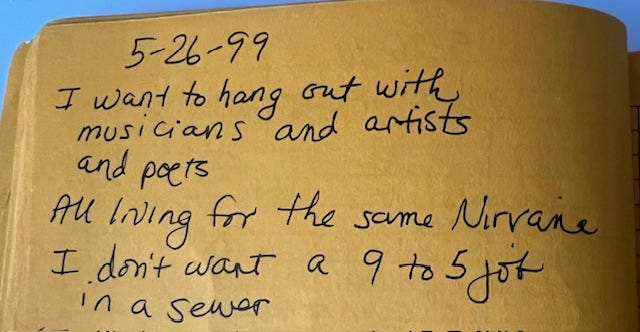 5-26-99
I want to hang out with
musicians and artists
and poets
All living for the same Nirvana
I don't want a 9 to 5 job
in a sewer